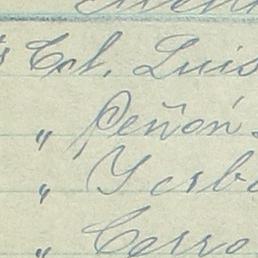 Col. Luis
" Peñón
" Yerb
" Cerro